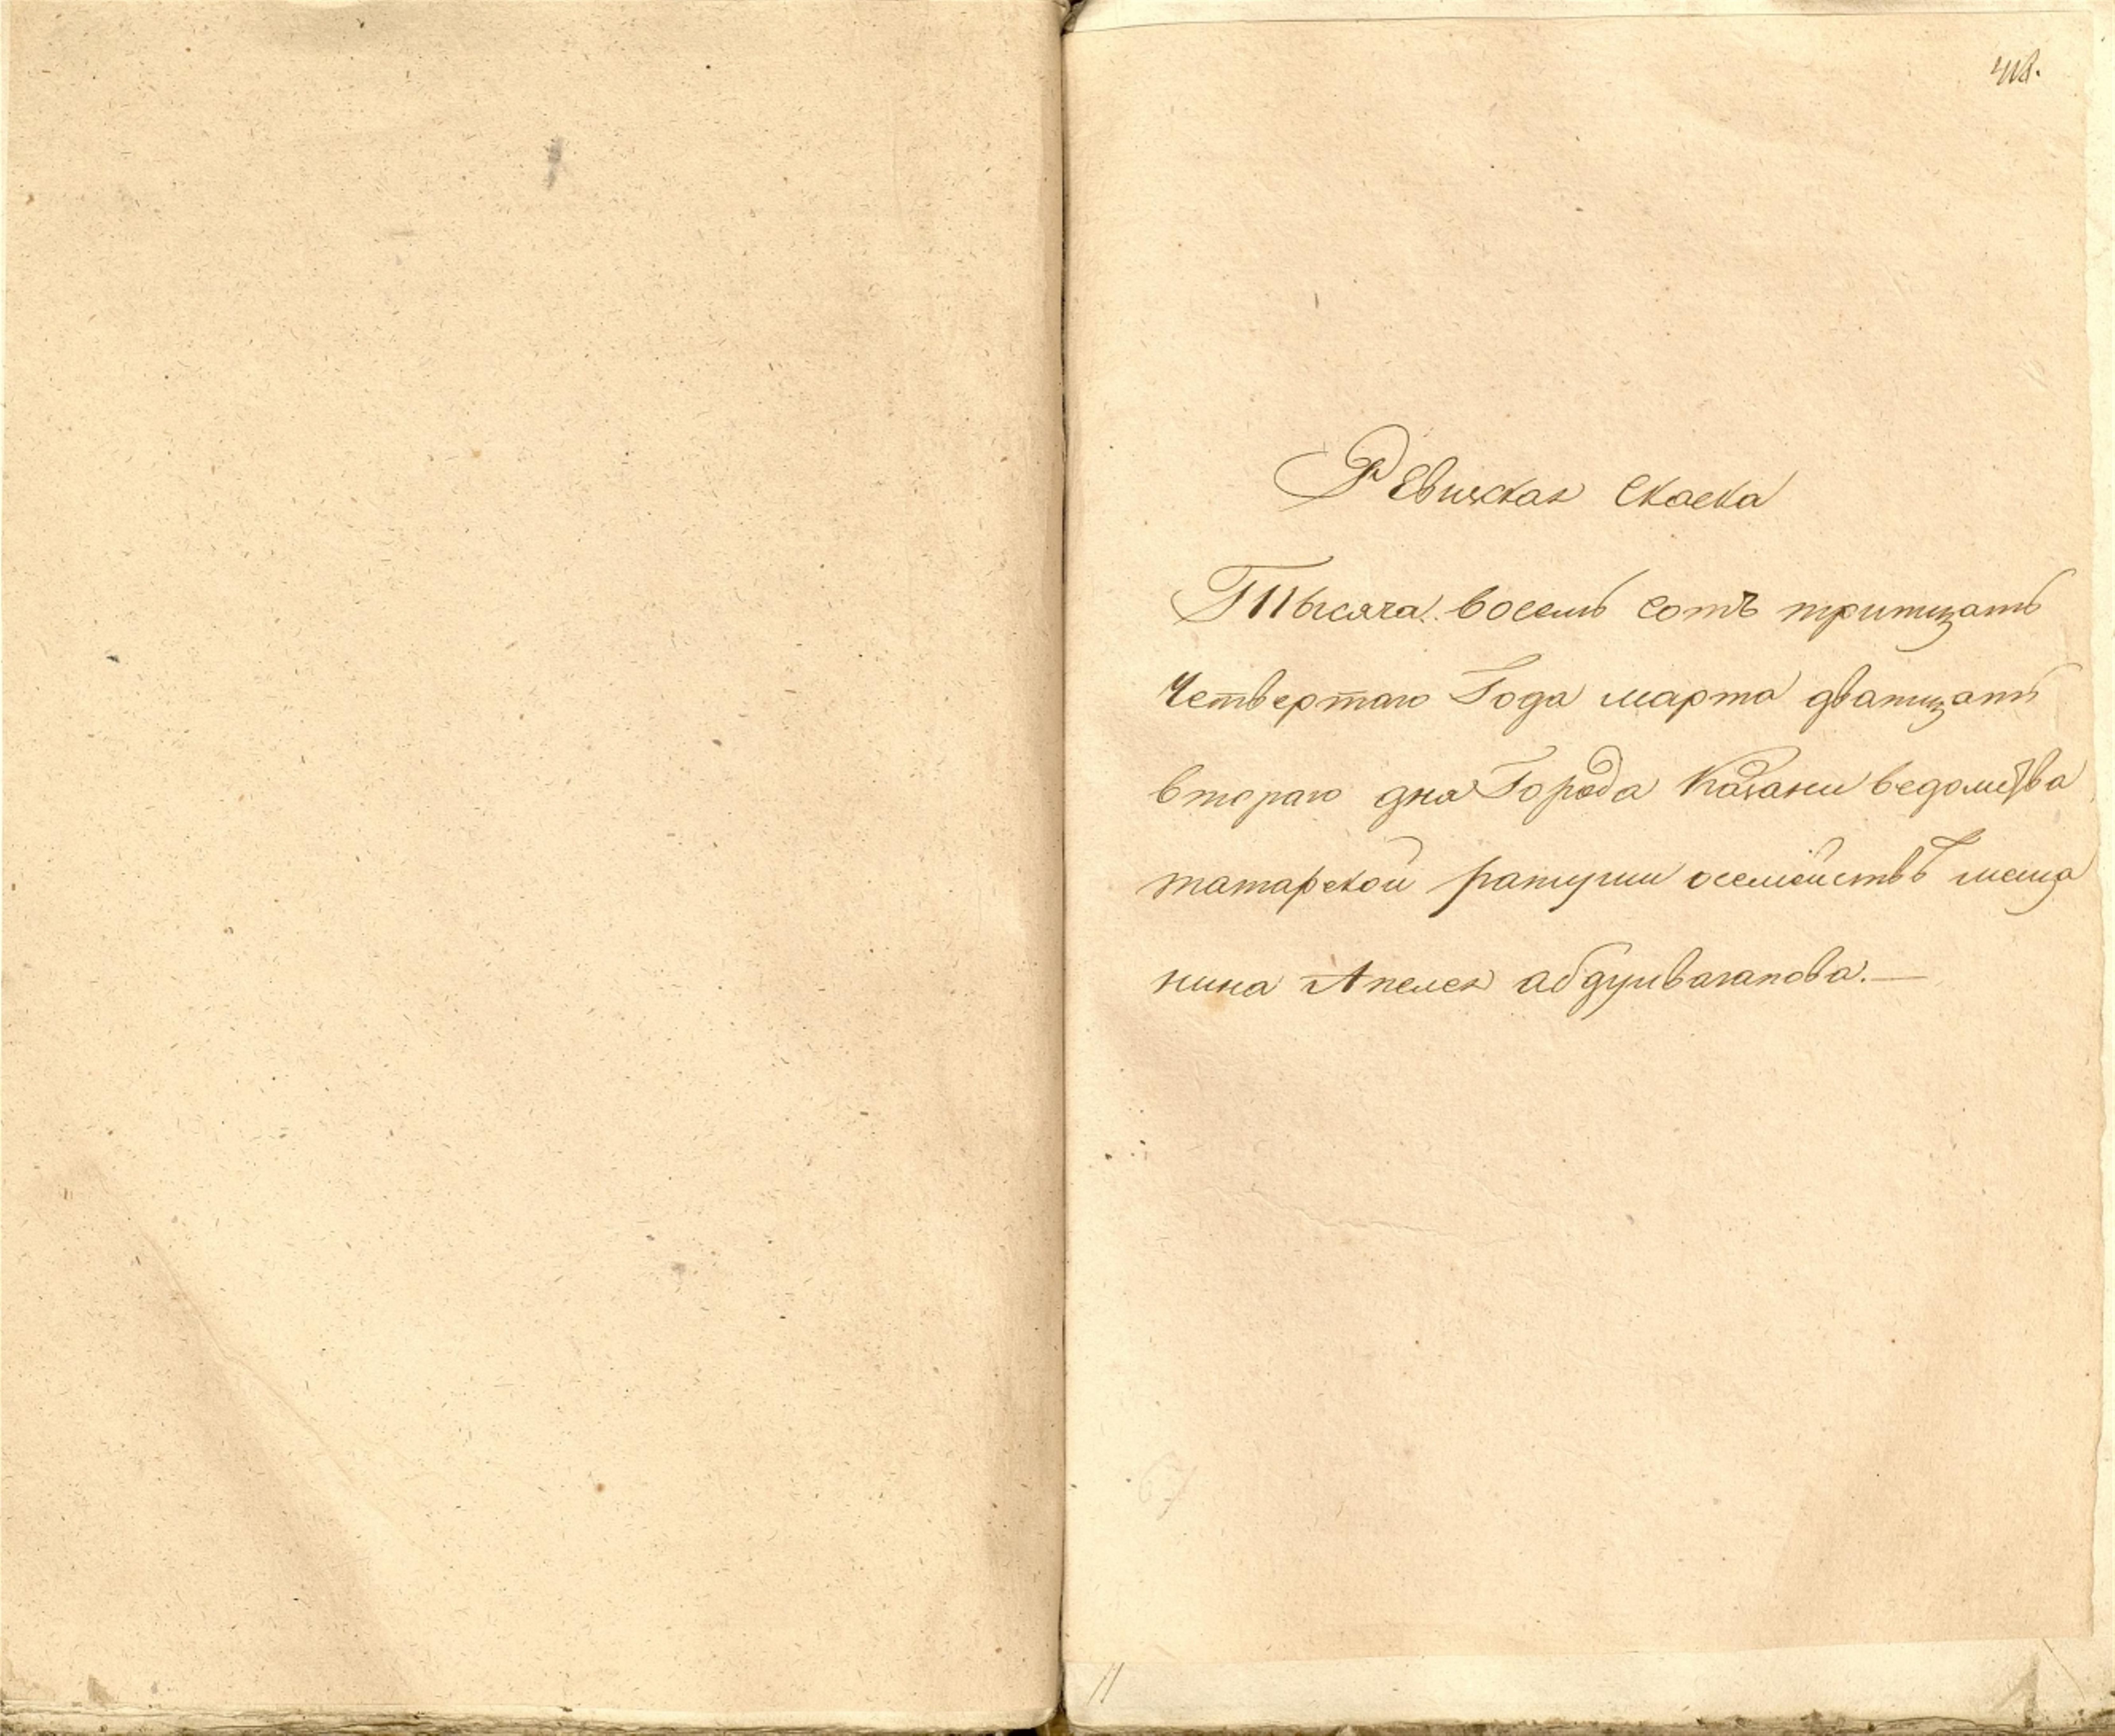 418.
Ревижская Скаска
Тысяча восемь сотъ тритцать
Четвертаго Года марта дватцать
втораго дня Города Казани ведомства
татарской ратуши осемействѣ меща
нина Апелея абдулвагапова.—